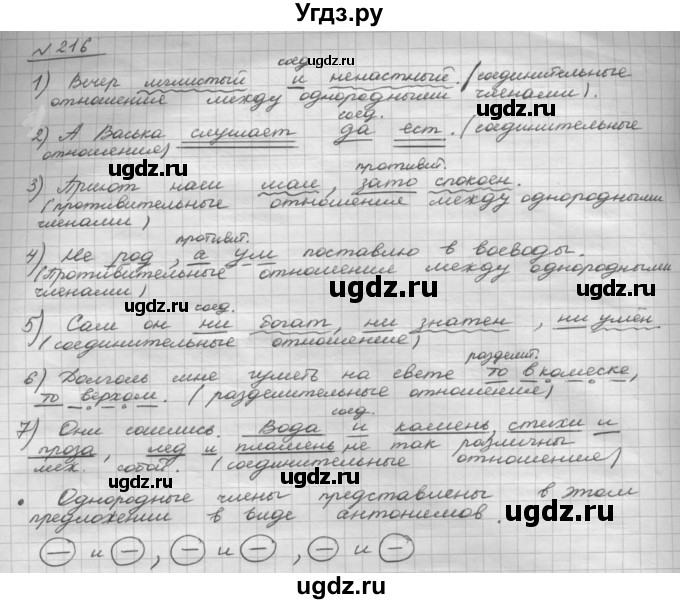 Угдз.ру
№ 216
соед.
1) Вечер мглистый и ненастный. (соединительные
отношения между однородными членами).
соед.
2) А Васька слушает да ест. (соединительные
отношения)
противит.
3) Приют наш мал, зато спокоен.
(противительные отношения между однородными
членами)
противит.
4) Не род, а ум поставлю в воеводы.
(Противительные отношения между однородными
членами)
соед.
5) Сам он ни богат, ни знатен, ни умен
(соединительные отношения)
разделит.
6) Долголь мне гулять на свете то в коляске,
то верхом. (разделительные отношения)
соед.
7) Они сошлись. Вода и камень, стихи и
проза, лед и пламень не так различны
меж. собой. (соединительные отношения)
• Однородные члены представлены в этом
предложении в виде антонимов.
и , и , и
ugdz.ru ugdz.ru ugdz.ru
ugdz.ru
ugdz.ru
ugdz.ru
ugdz.ru
ugdz.ru
ugdz.ru
ugdz.ru
ugdz.ru
ugdz.ru
ugdz.ru ugdz.ru ugdz.ru